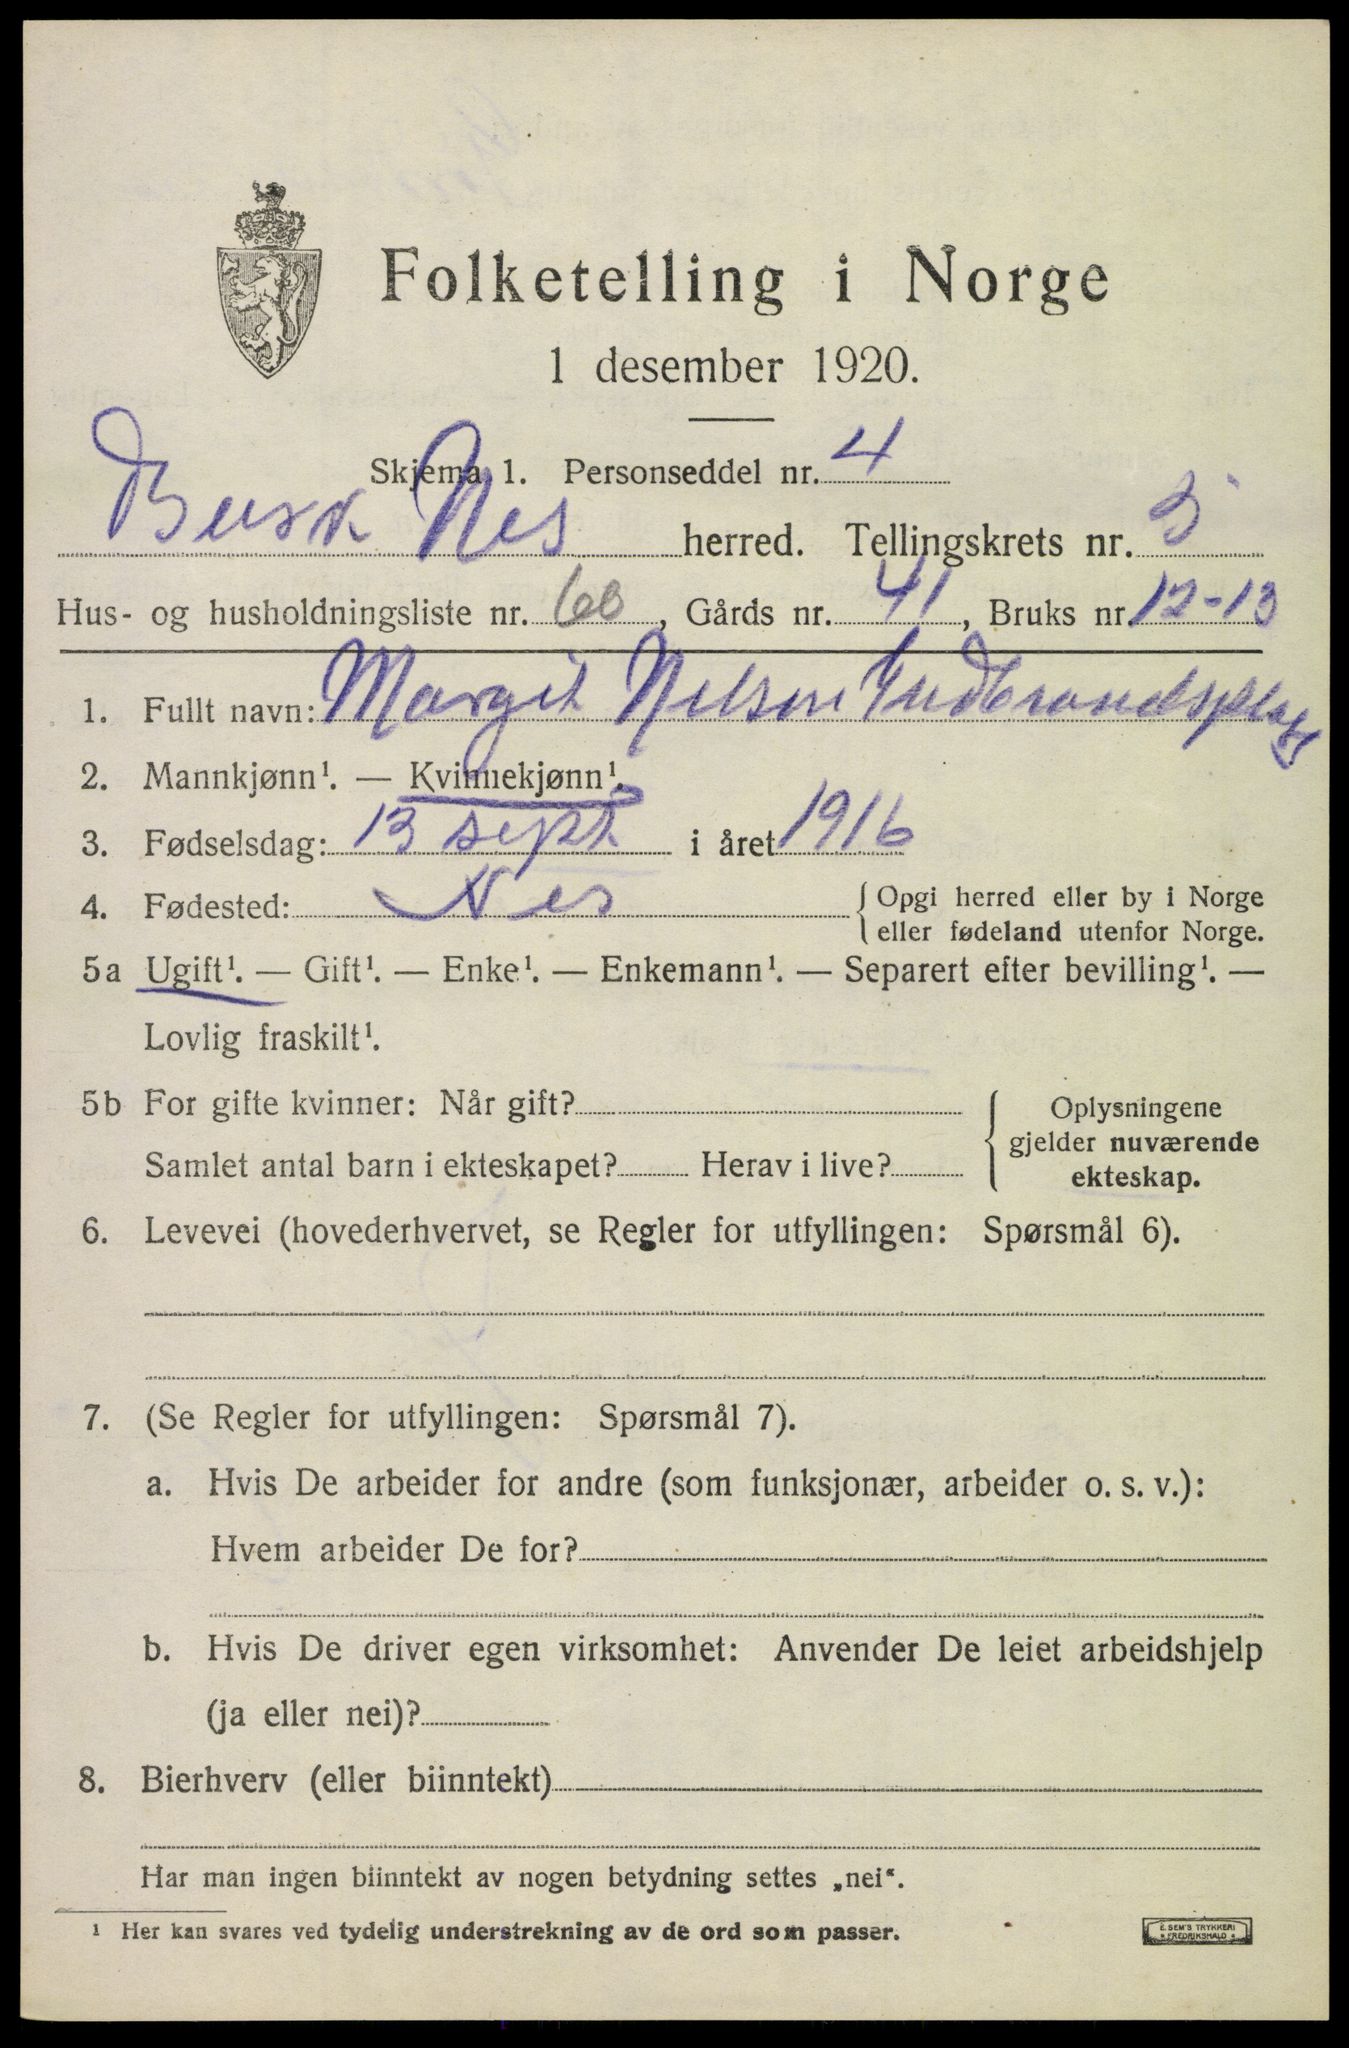 Folketelling i Norge
1 desember 1920.
Skjema 1. Personseddel nr. 4
Busk Nes herred. Tellingskrets nr. 3
Hus- og husholdningsliste nr. 60, Gårds nr. 41, Bruks nr. 12-13
1. Fullt navn: Margit Nelson Gudbrandsplass
2. Mannkjønn¹. — Kvinnekjønn¹.
3. Fødselsdag: 13 sept i året 1916
4. Fødested: Nes {Opgi herred eller by i Norge
eller fødeland utenfor Norge.
5a Ugift¹. — Gift¹. — Enke¹. — Enkemann¹. — Separert efter bevilling¹. —
Lovlig fraskilt¹.
5b For gifte kvinner: Når gift? Oplysningene
gjelder nuværende
Samlet antal barn i ekteskapet? Herav i live?
ekteskap.
6. Levevei (hovederhvervet, se Regler for utfyllingen: Spørsmål 6).
7. (Se Regler for utfyllingen: Spørsmål 7).
a. Hvis De arbeider for andre (som funksjonær, arbeider o. s. v.):
Hvem arbeider De for?
b. Hvis De driver egen virksomhet: Anvender De leiet arbeidshjelp
(ja eller nei)?
8. Bierhverv (eller biinntekt)
Har man ingen biinntekt av nogen betydning settes „nei“.
¹ Her kan svares ved tydelig understrekning av de ord som passer.
E. SEM'S TRYKKERI
* FREDRIKSHALD *